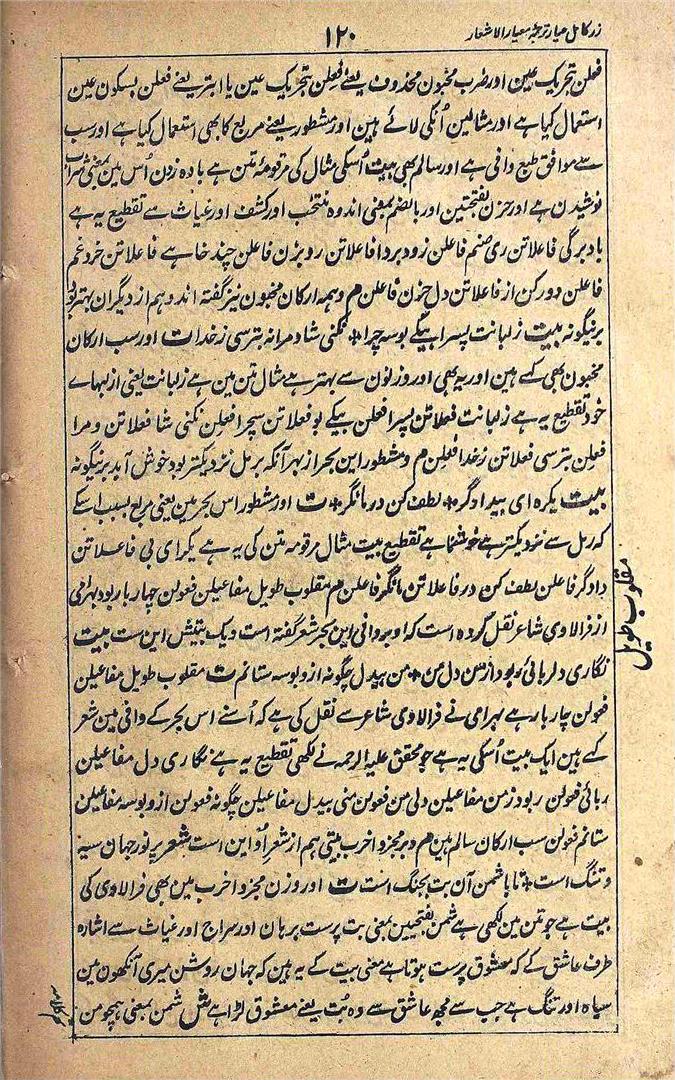 زر کامل عیار ترجمۂ معیار الاشعار
۱۲۰
فعلن بتحریک عین اور ضرب مخبون محذوف یعنے فعلن بتحریک عین یا ابتر یعنے فعلن بسکون عین
استعمال کیا ہے اور مثالین اُنکی لائے ہین اور مشطور یعنے مربع کا بھی استعمال کیا ہے اور سب
سے موافق طبع وافی ہے اور سالم بھی بیت اُسکی مثال کی مرقومۂ متن ہے بادہ زدن اُس مین بمعنی شراب
نوشیدن ہے اور حزن بفتحتین اور بالضم بمعنی اندوہ منتخب اور کشف اور غیاث سے تقطیع یہ ہے
باد برگی فاعلاتن ری صنم فاعلن زود بردا فاعلاتن رو بزن فاعلن چند خا ہے فاعلاتن خرد غم
فاعلن دور کن از فاعلاتن دل حزن فاعلن م و ہمہ ارکان مخبون نیز گفتہ اند و ہم از دیگران بہتر بود
برنیگونہ بیت ز لبانت پسرا بیکے بوسہ چرا + نکنی شاد مرا نہ بترسی ز خدا ت اور سب ارکان
مخبون بھی کہے ہین اور یہ بھی اور وزنون سے بہتر ہے مثال متن مین ہے ز لبانت یعنی از لبہاے
خود تقطیع یہ ہے ز لبانت فعلاتن پسرا فعلن بیکے بو فعلاتن سچرا فعلن نکنی شا فعلاتن د مرا
فعلن بترسی فعلاتن ز خدا فعلن م و مشطور این بحر از بہر آنکہ برمل نزدیکتر بود خوش آید برنیگونہ
بیت یکرہ ای بیدادگر + لطف کن در مانگر + ت اور مشطور اس بحر مین یعنی مربع بسبب اسکے
کہ رمل سے نزدیکتر ہے خوشنما ہے تقطیع بیت مثال مرقومہ متن کی یہ ہے یکرای بی فاعلاتن
دادگر فاعلن لطف کن در فاعلاتن مانگر فاعلن م مقلوب طویل مفاعیلن فعولن چہار بار بود بہرامی
از فرالاوی شاعر نقل کردہ است کہ او بروافی این بحر شعر گفتہ است و یک بیتش این ست بیت
نگاری دلربائی ربود از من دل من + من بیدل چگونہ ازو بوسہ ستانم ت مقلوب طویل مفاعیلن
فعولن چار بار ہے بہرامی نے فرالاوی شاعر سے نقل کی ہے کہ اُسنے اس بحر کے وافی مین شعر
کہے ہین ایک بیت اُسکی یہ ہے جو محقق علیہ الرحمہ نے لکھی تقطیع یہ ہے نگاری دل مفاعیلن
ربائی فعولن ربود ز من مفاعیلن دلی من فعولن منی بیدل مفاعیلن چگونہ فعولن ازو بوسہ مفاعیلن
ستانم فعولن سب ارکان سالم ہین م و بر مجزو اخرب بیتی ہم از شعر اُو این است شعر پر نور جہان سیہ
و تنگ است + تا با شمن آن بت بجنگ است ت اور وزن مجزو اخرب مین بھی فرالاوی کی
بیت ہے جو متن مین لکھی ہے شمن بفتحتین بمعنی بت پرست برہان اور سراج اور غیاث سے اشارہ
طرف عاشق کے کہ معشوق پرست ہوتا ہے معنی بیت کے یہ ہین کہ جہان روشن میری آنکھون مین
سیاہ اور تنگ ہے جب سے مجھ عاشق سے وہ بُت یعنے معشوق لڑا ہے ش شمن بمعنی ہمچو من
مقلوب طویل